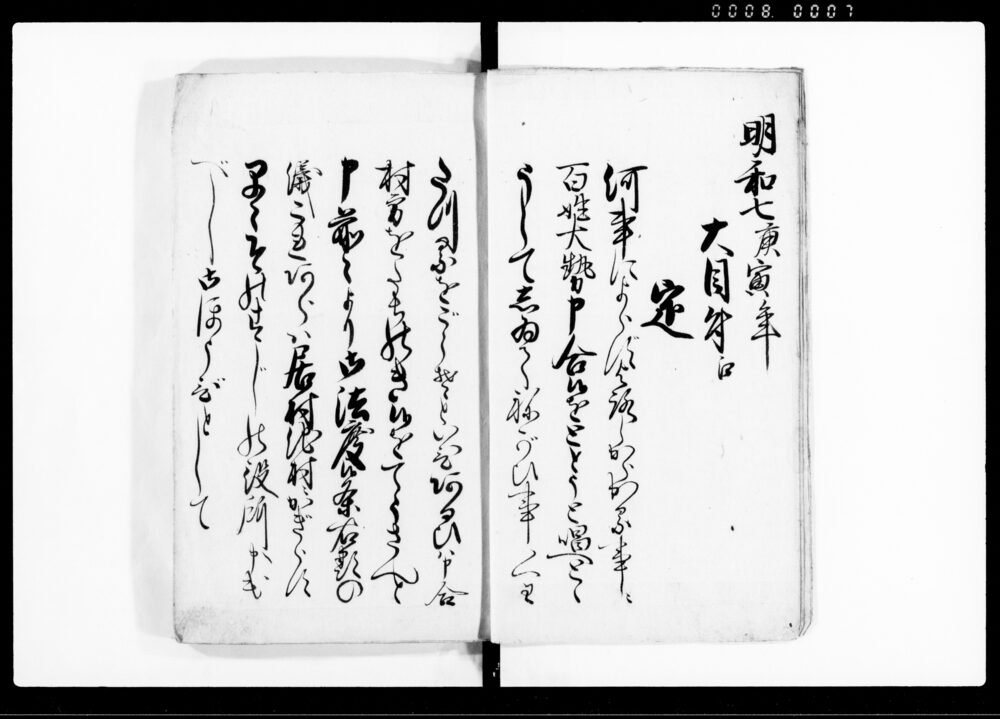 0008. 0007
明和七庚寅年
大目付江
定
何事によらすよろしからさる事に
百姓大勢申合候をととうと唱へとゝ
うして志ゐてねかひ事くわ
たつるをこうそといひあるひハ申合
村方をたちのき候をてうさんと
申前々より御法度候条右類の
儀これあらハ居村他村にかきらす
早々其すしの役所江申出
へし御ほうひとして